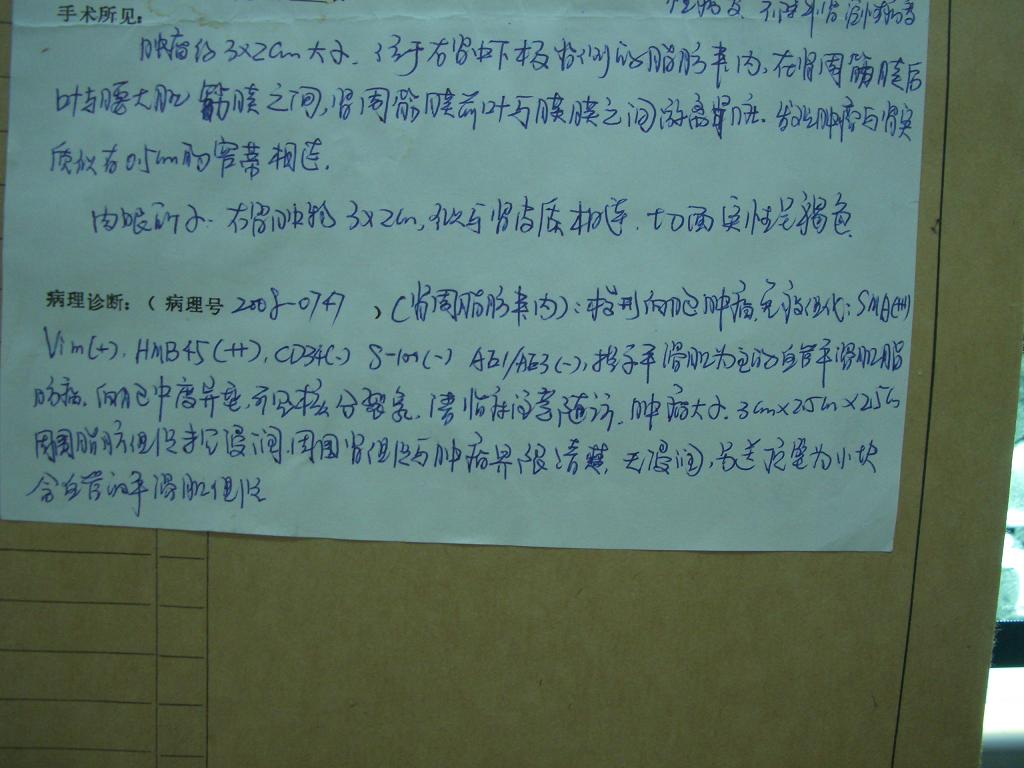 手术所见:
肿瘤约3×2cm大小.位于右肾中下极背侧的脂肪囊内,在肾周筋膜后
叶与腰大肌筋膜之间,肾周筋膜前叶与腹膜之间游离肾脏.发现肿瘤与肾实
质似有0.5cm的窄蒂相连.
肉眼所见.右肾肿物3×2cm,似与肾皮质相连.切面实性呈褐色.
病理诊断:(病理号2008-0747)(肾周脂肪囊内):梭形细胞肿瘤,免疫组化:SMA(+++)
Vim(+).HMB45(++),CD34(-) S-100(-) AE1/AE3(-),提示平滑肌为主的血管平滑肌脂
肪瘤.细胞中度异型,可见核分裂象.请临床注意随访.肿瘤大小.3cm×2.5cm×2.5cm
周围脂肪组织未见浸润.周围肾组织与肿瘤界限清楚,无浸润,另送质望为小块
含血管的平滑肌组织